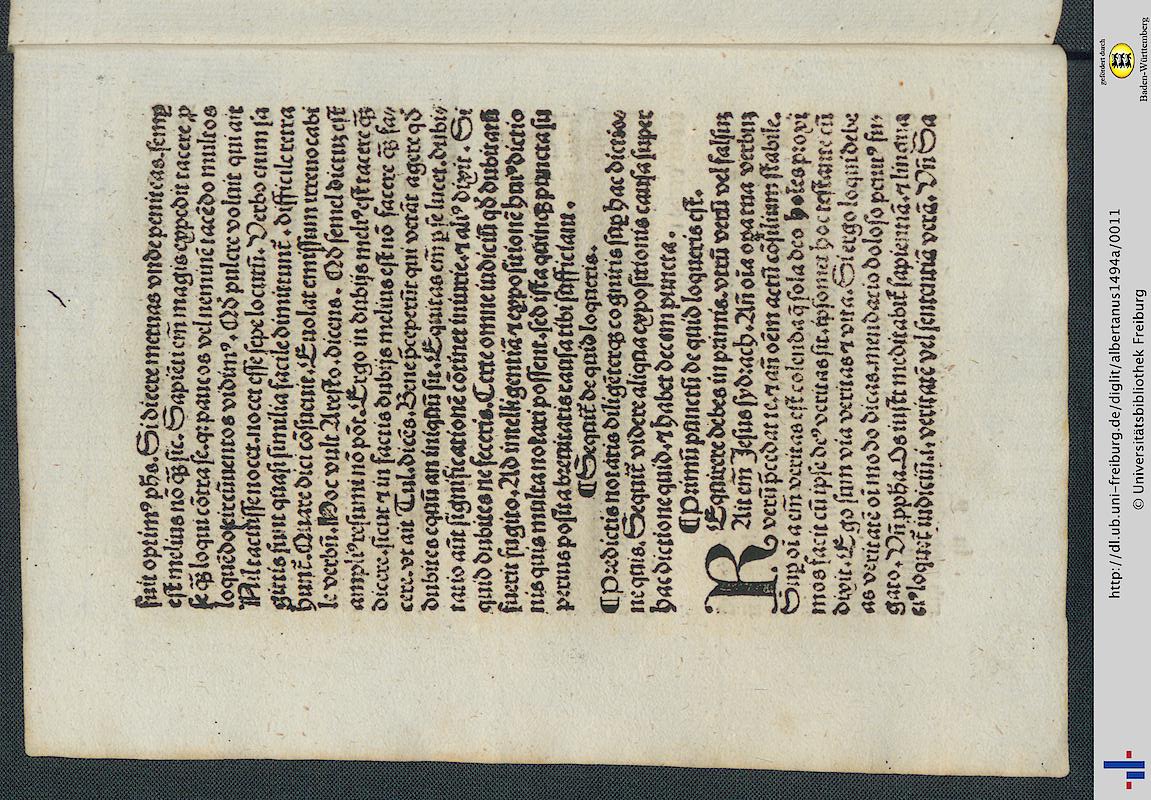 fuit optimꝰ phs. Si dicere metuas vnde peniteas. semꝑ
est melius nō ꝙ̄ sic. Sapiēti em̄ magis expedit tacere ꝓ
se ꝙ̄ loqui cōtra se. qꝛ paucos vel neminē tacēdo multos
loquēdo circūuentos vidimꝰ. Qd pulcre voluit qui ait
Nil tacuisse nocet. nocet esse sepe locutū. Verbo enim sa
gittis sunt quasi similia facile dimittunt. difficile retra
hunt. Quare dici cōsueuit. Euolat emissum irreuocabi
le verbū. Hoc vult Aresto. dicens. Qd semel dictuꝫ est
ampliꝰ resumi nō pōt. Ergo in dubijs meliꝰ est tacere ꝙ̄
dicere. sicut ⁊ in factis dubijs melius est nō facere ꝙ̄ fa-
cere. vt ait Tul. dicēs. Bene p̄ceperūt qui vetāt agere qd̄
dubites equū an iniquū sit. Equitas em̄ ꝑ se lucet. dubi-
tatio aūt significationē cōtinet iniurie. ⁊ aliꝰ dixit. Si
quid dubites ne feceris. Certe omne iudiciū qd̄ dubitatū
fuerit fugito. Ad intelligentiā ⁊ expositionē huiꝰ dictio
nis quis multa notari possent. sed ista quinqꝫ puncta su
perius posita breuitatis causa tibi sufficiant.
⸿ Sequit̄ de quid loqueris.
⸿ Predictis notatis diligēterqꝫ cognitis suꝑ hac dictio
ne quis. Sequit̄ videre aliqua expositionis causa super
hac dictione quid. ⁊ habet decem puncta.
⸿ Primū puncti de quid loqueris est.
REquirere debes in primis. vtrū verū vel falsuꝫ
Ait em̄ Jesus sydrach. Añ oīa oꝑa tua verbuꝫ
verū p̄cedat te. ⁊ añ oēm actū cōsilium stabile.
Suꝑ oīa em̄ veritas est colenda q̄ sola deo hoīes ꝓxi
mos facit cū ipse deꝰ veritas sit. ip̄semet hoc testante cū
dixit. Ego sum via veritas ⁊ vita. Si ergo loqui debe
as veritatē oī modo dicas. mendacio doloso penitꝰ fu-
gato. Vñ ꝓpha. Os iusti meditabit̄ sapientiā. ⁊ lingua
eiꝰ loquet̄ iudiciū. i. veritatē vel sententiā verā. Vñ Sa
http://dl.ub.uni-freiburg.de/diglit/albertanus1494a/0011
© Universitätsbibliothek Freiburg
gefördert durch
Baden-Württemberg